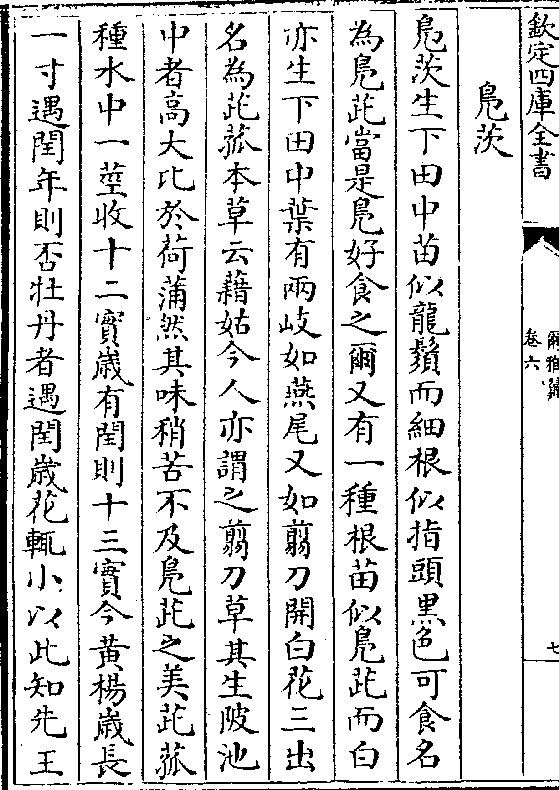 欽定四庫全書
爾雅翼
卷六
七
鳧茨
鳧茨生下田中苗似龍鬚而細根似指頭黒色可食名
為鳧茈當是鳧好食之爾又有一種根苗似鳧茈而白
亦生下田中葉有兩岐如燕尾又如翦刀開白花三出
名為茈菰本草云藉姑今人亦謂之翦刀草其生陂池
中者高大比於荷蒲然其味稍苦不及鳧茈之美茈菰
種水中一莖收十二實歲有閏則十三實今黃楊歲長
一寸遇閏年則否牡丹者遇閏歲花輒小以此知先王